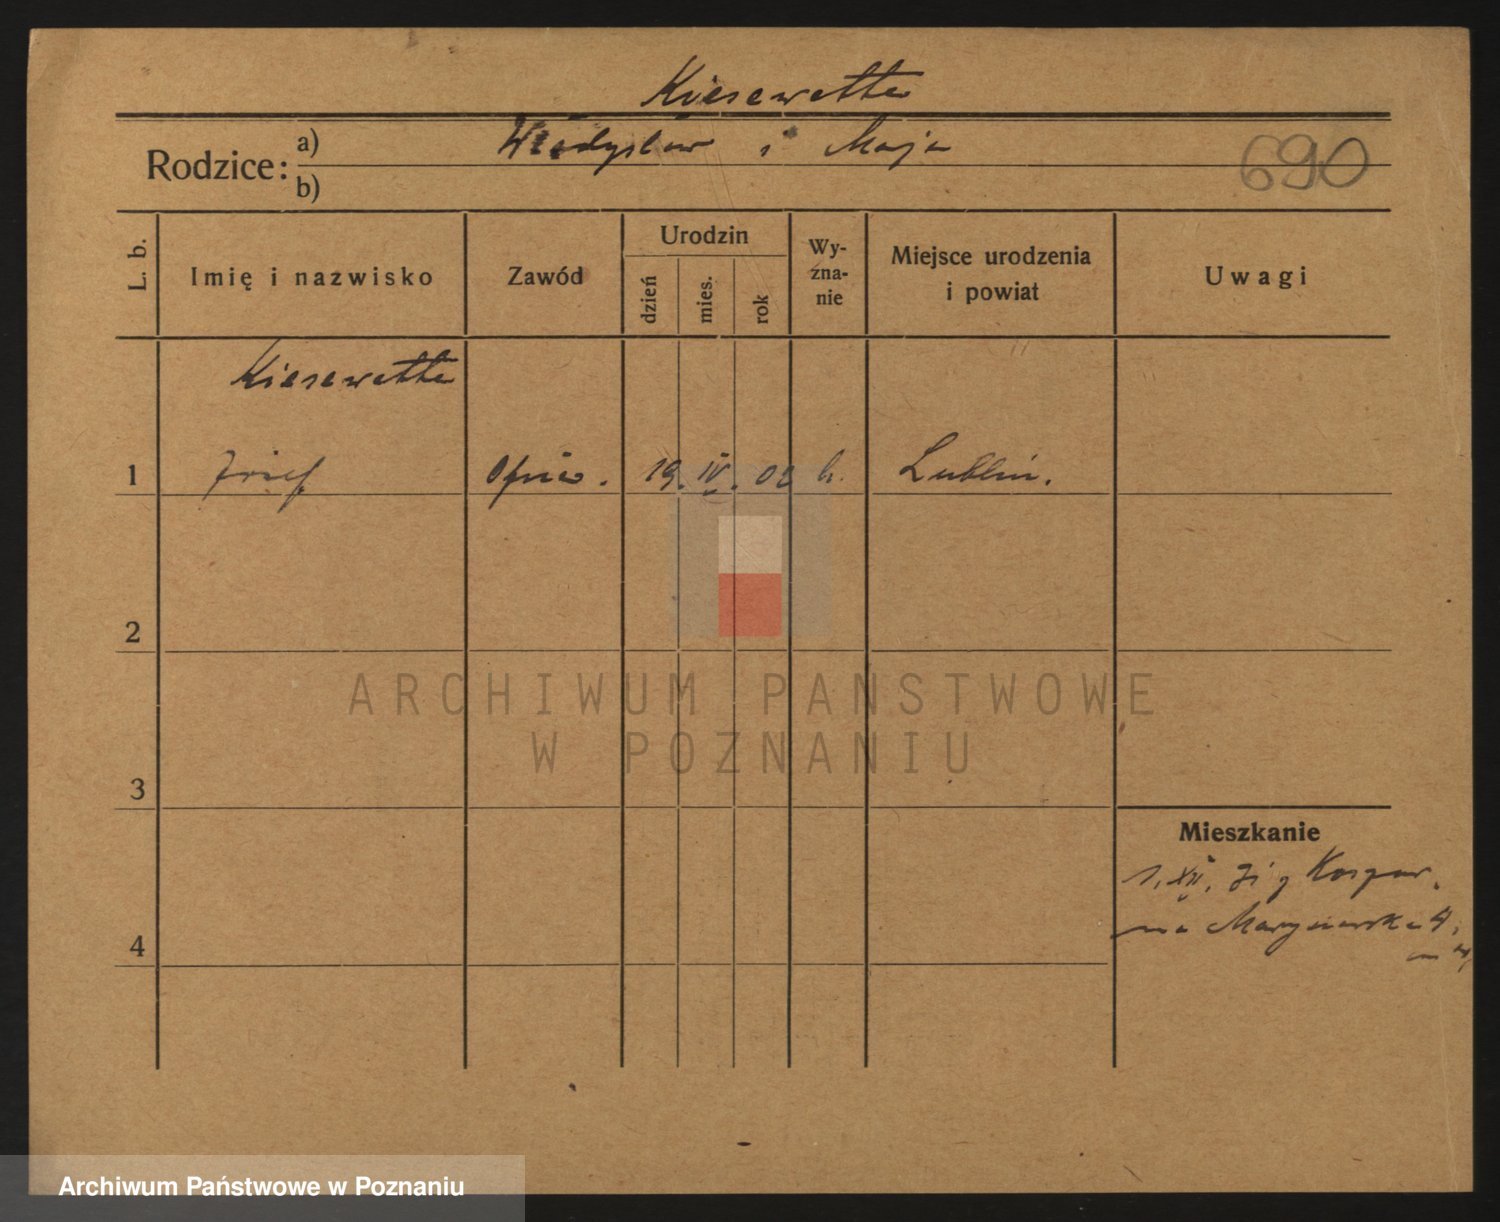 Kiesewetter
Rodzice: a) Władysław i Maja
b)
690
L. b.
Imię i nazwisko
Zawód
Urodzin
dzień
mies.
rok
Wy-
zna-
nie
Miejsce urodzenia
i powiat
Uwagi
Kiesewetter
1 Józef 19. IV. 02 Lublin.
2
3
4
Mieszkanie
1. XII.
na Marynarska 4,
ARCHIWUM PANSTWOWE
W POZNANIU
Archiwum Państwowe w Poznaniu